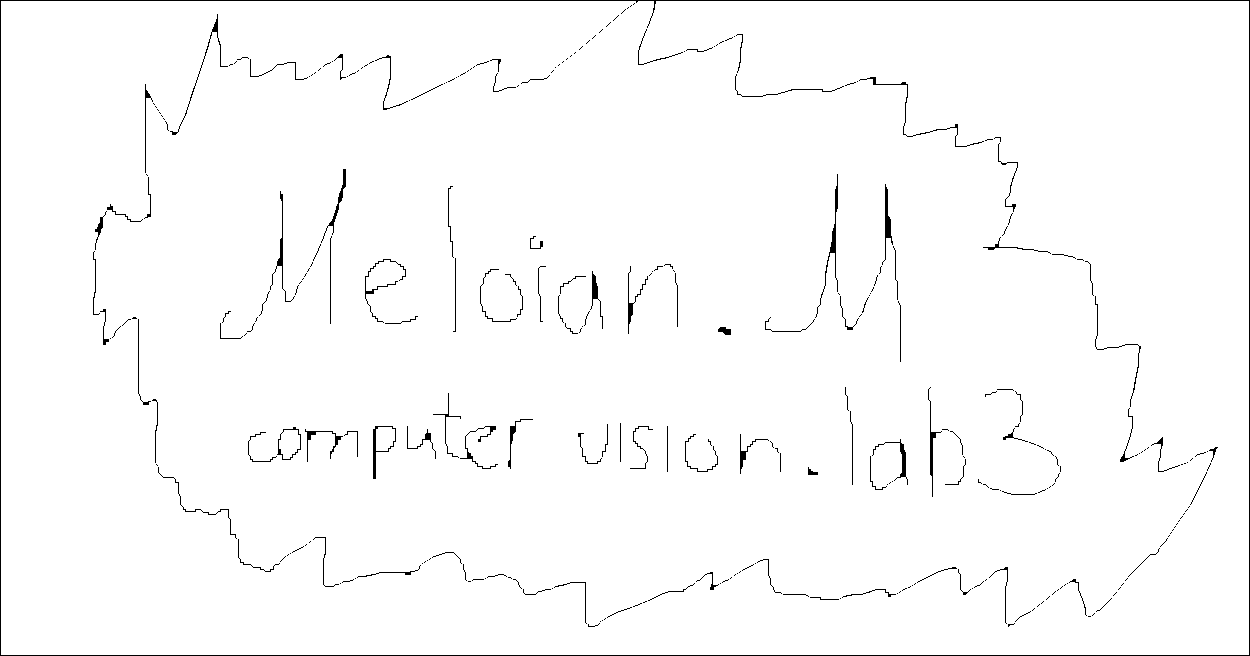 Meloian. M
computer vision. lab3